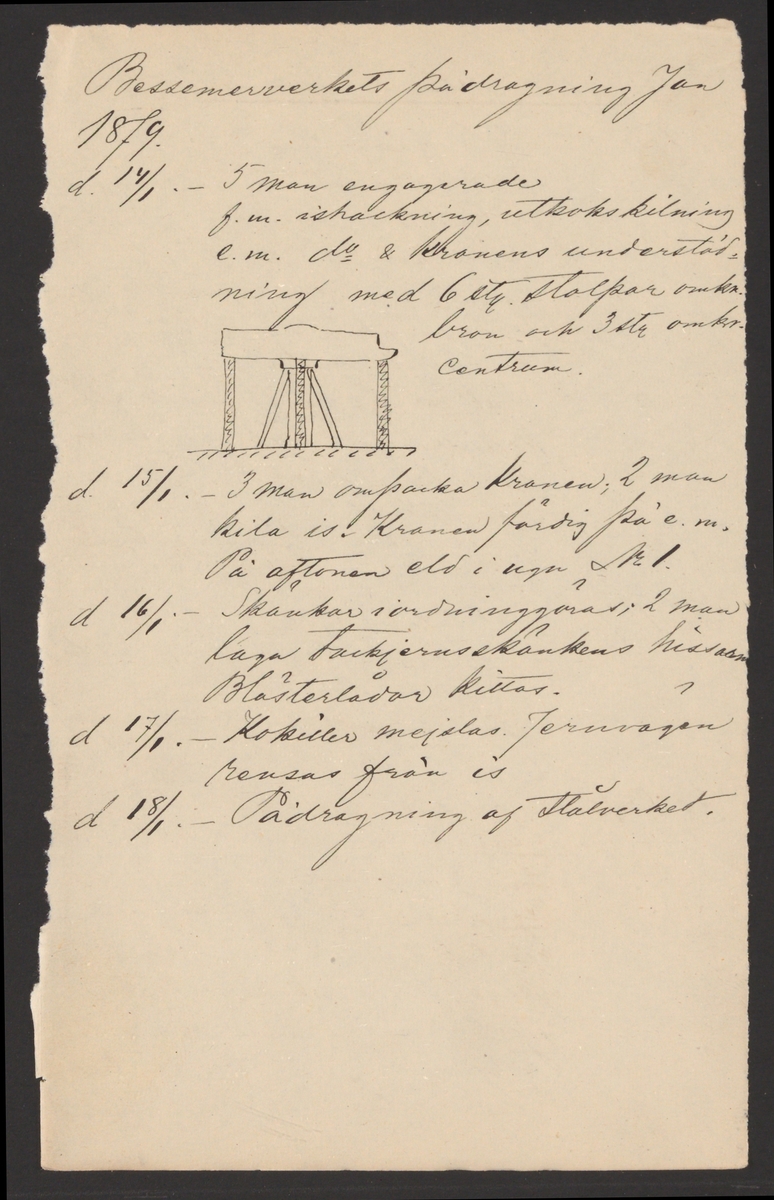 Bessemerverkets pådragning Jan
1879.
d. 14/1. – 5 man engagerade
f.m. ishackning, utkokskilning
e.m. do & Kranens understöd-
ning med 6 stn. stolpar omkr.
kron och 3 stn omkr.
centrum.
d. 15/1. – 3 man ompacka Kranen; 2 man
kila is. Kranen färdig på e.m.
På aftonen eld i ugn No 1.
d 16/1. – Skänkar iordninggöras; 2 man
laga tackjernsskänkens hissarm
Blästerlådor kittas.
d 17/1. – Kokiller mejslas. Jernvågen
rensas från is
d 18/1. – Pådragning af Stålverket.